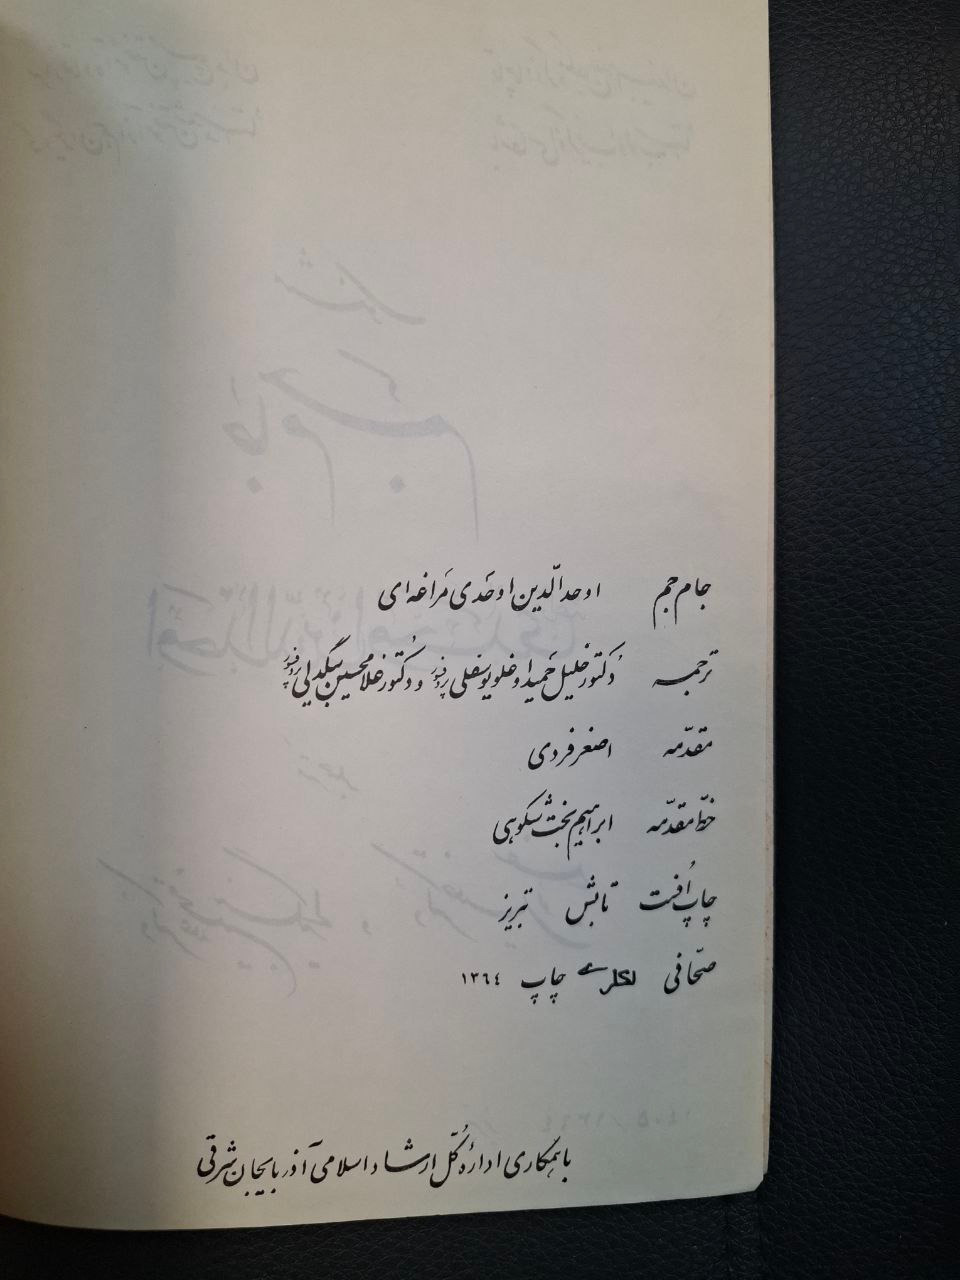 جام جم اوحدالدّین اوحَدی مَراغه‌ای
ترجمه دُکتور خلیل حَمیداوغلو یوسفلی پروفسور و دُکتور غلامحسین بیگدلی پروفسور
مقدّمه اصغر فردی
خطّ مقدّمه ابراهیم بخت شکوهی
چاپ اُفست تابش تبریز
صحّافی چاپ ١٣٦٤
با همکاری ادارهٔ کُلّ ارشاد اسلامی آذربایجان شرقی